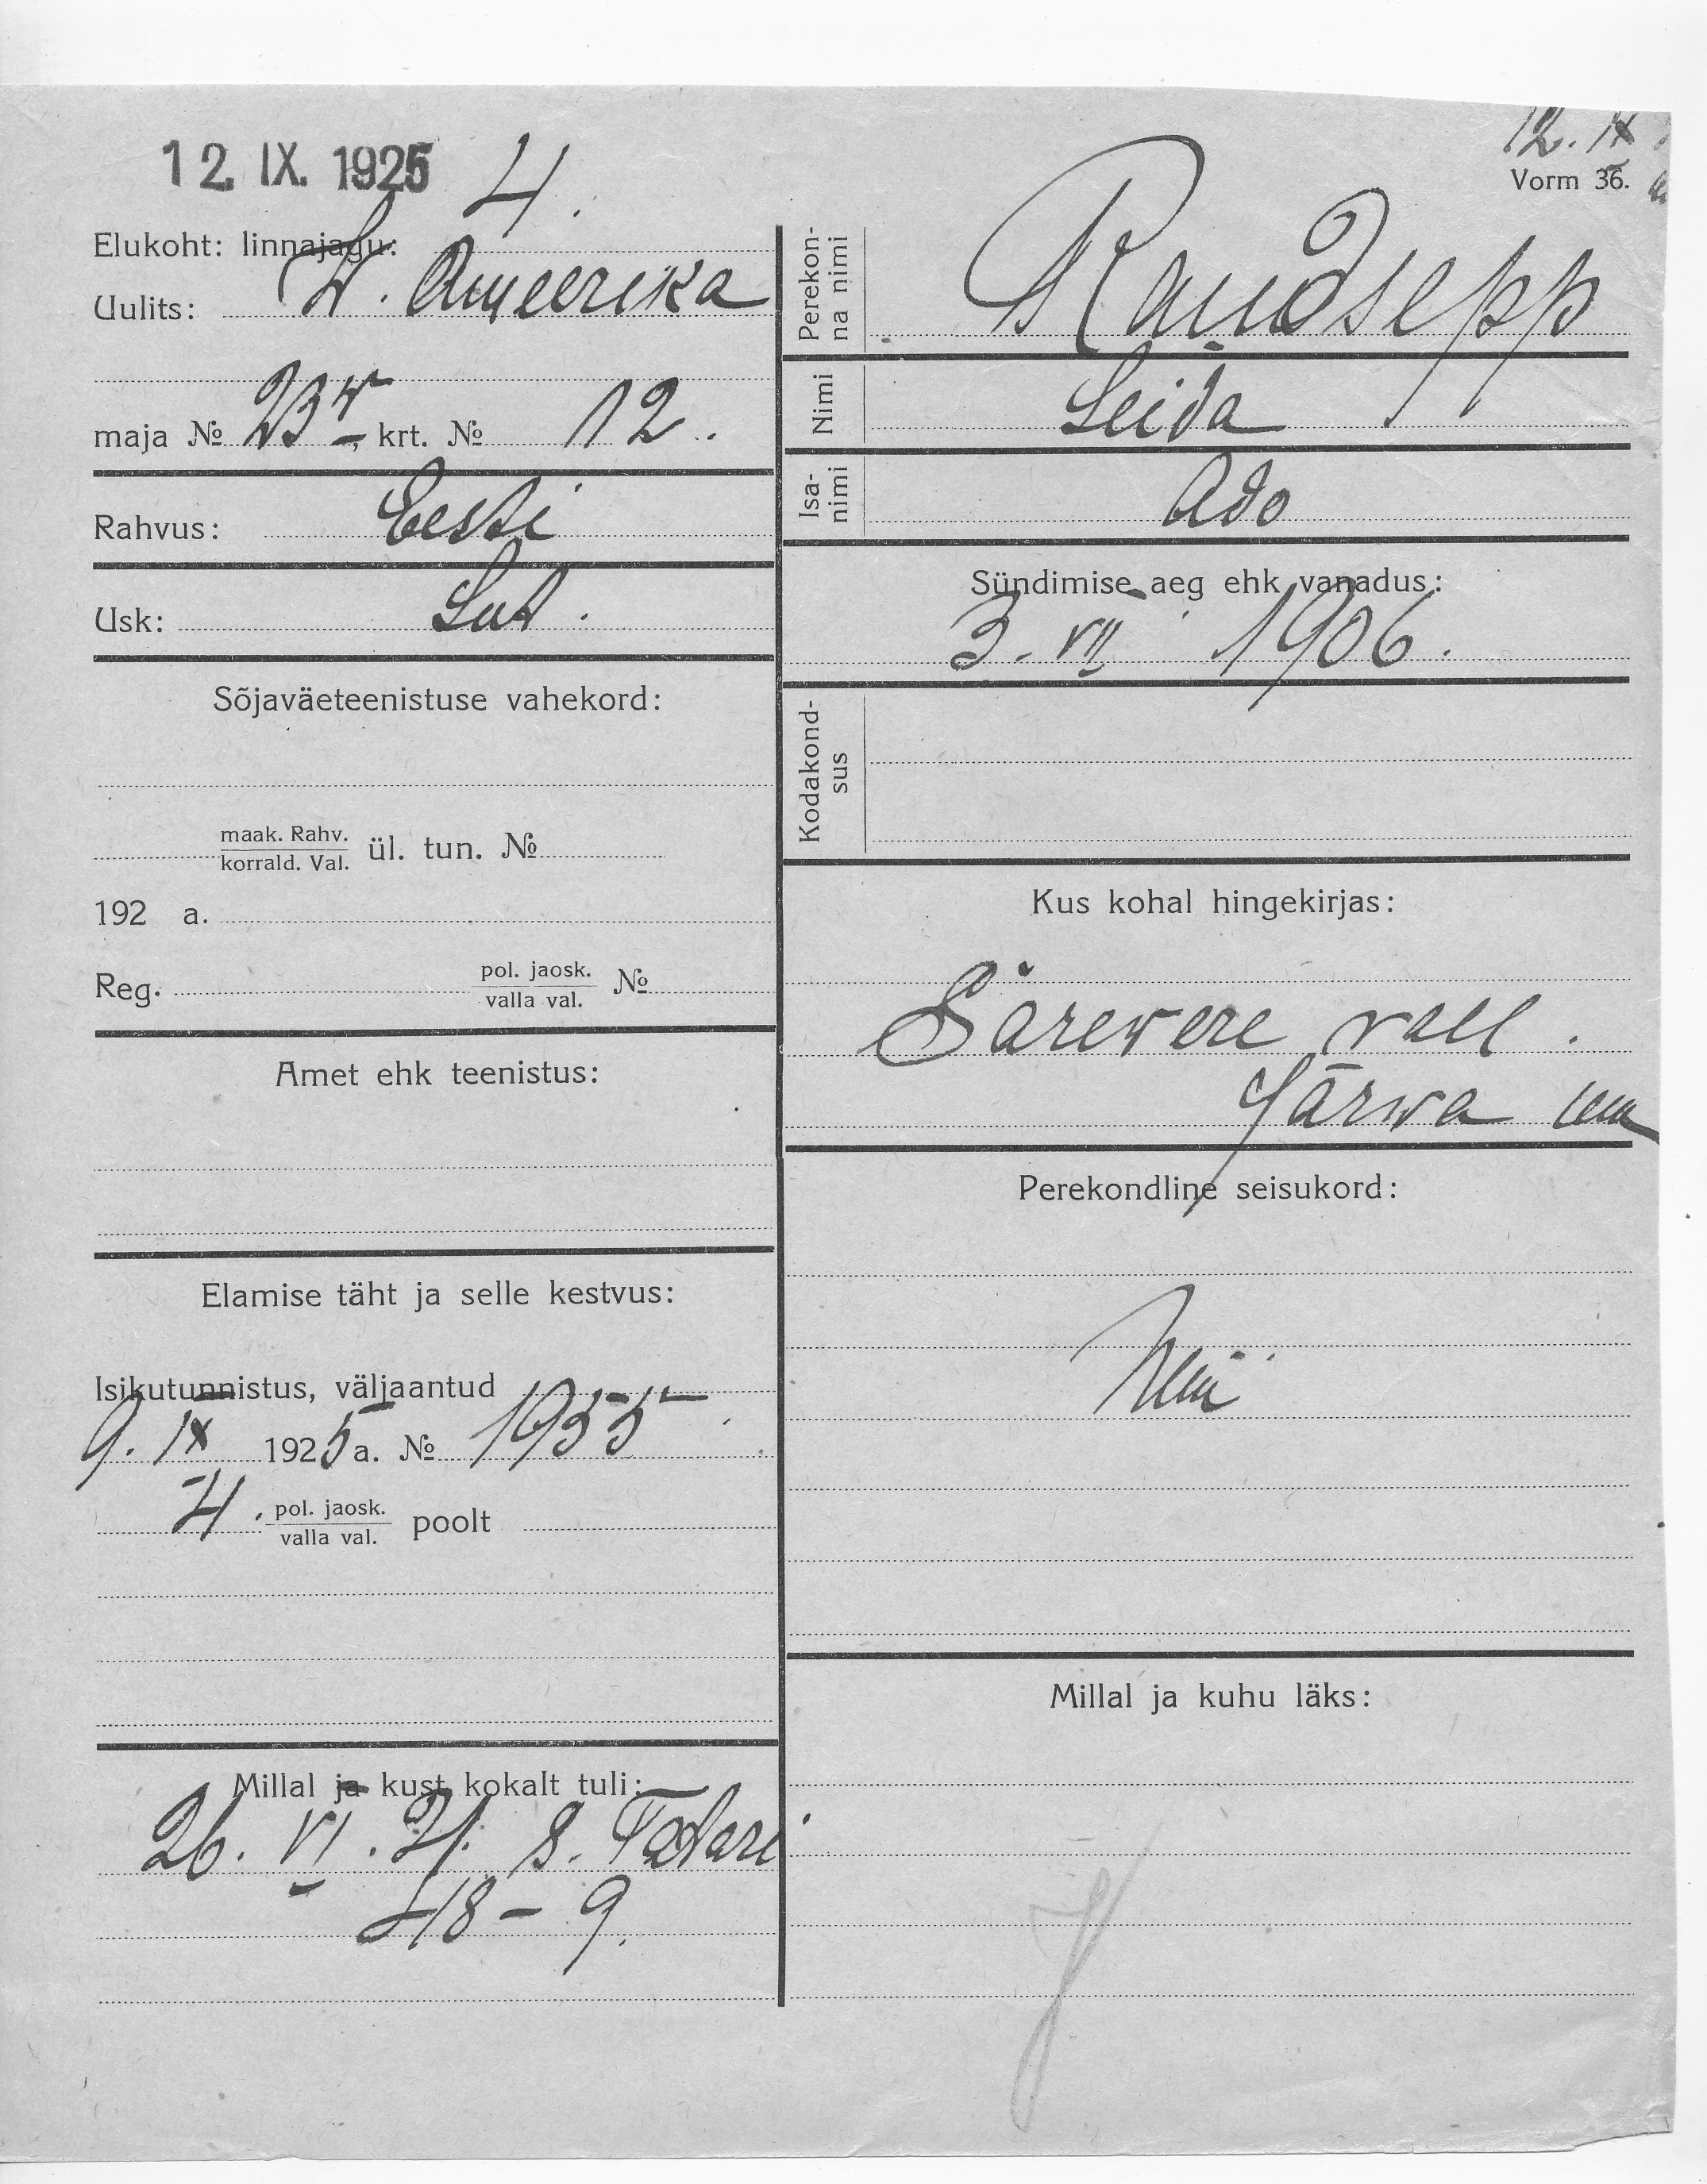 12. IX. 1925
4.
12. IX
Vorm 36.
Elukoht: linnajagu:
Uulits: W. Ameerika
maja № 23 krt. № 12.
Rahvus: Eesti
Usk: Lut.
Sõjaväeteenistuse vahekord:
maak. Rahv.
korrald. Val. ül. tun. №
192 a.
Reg. pol. jaosk.
valla val. №
Amet ehk teenistus:
Elamise täht ja selle kestvus:
Isikutunnistus, väljaantud
9. IX 1925 a. № 1955
4. pol. jaosk.
valla val. poolt
Millal ja kust kokalt tuli:
26. VI. 24. S. Tatari
48 - 9.
Perekon-
na nimi Raudsepp
Nimi Leida
Isa-
nimi Ado
Sündimise aeg ehk vanadus:
3. VII 1906.
Kodakond-
sus
Kus kohal hingekirjas:
Särewere vall.
Järwa
Perekondline seisukord:
Millal ja kuhu läks: